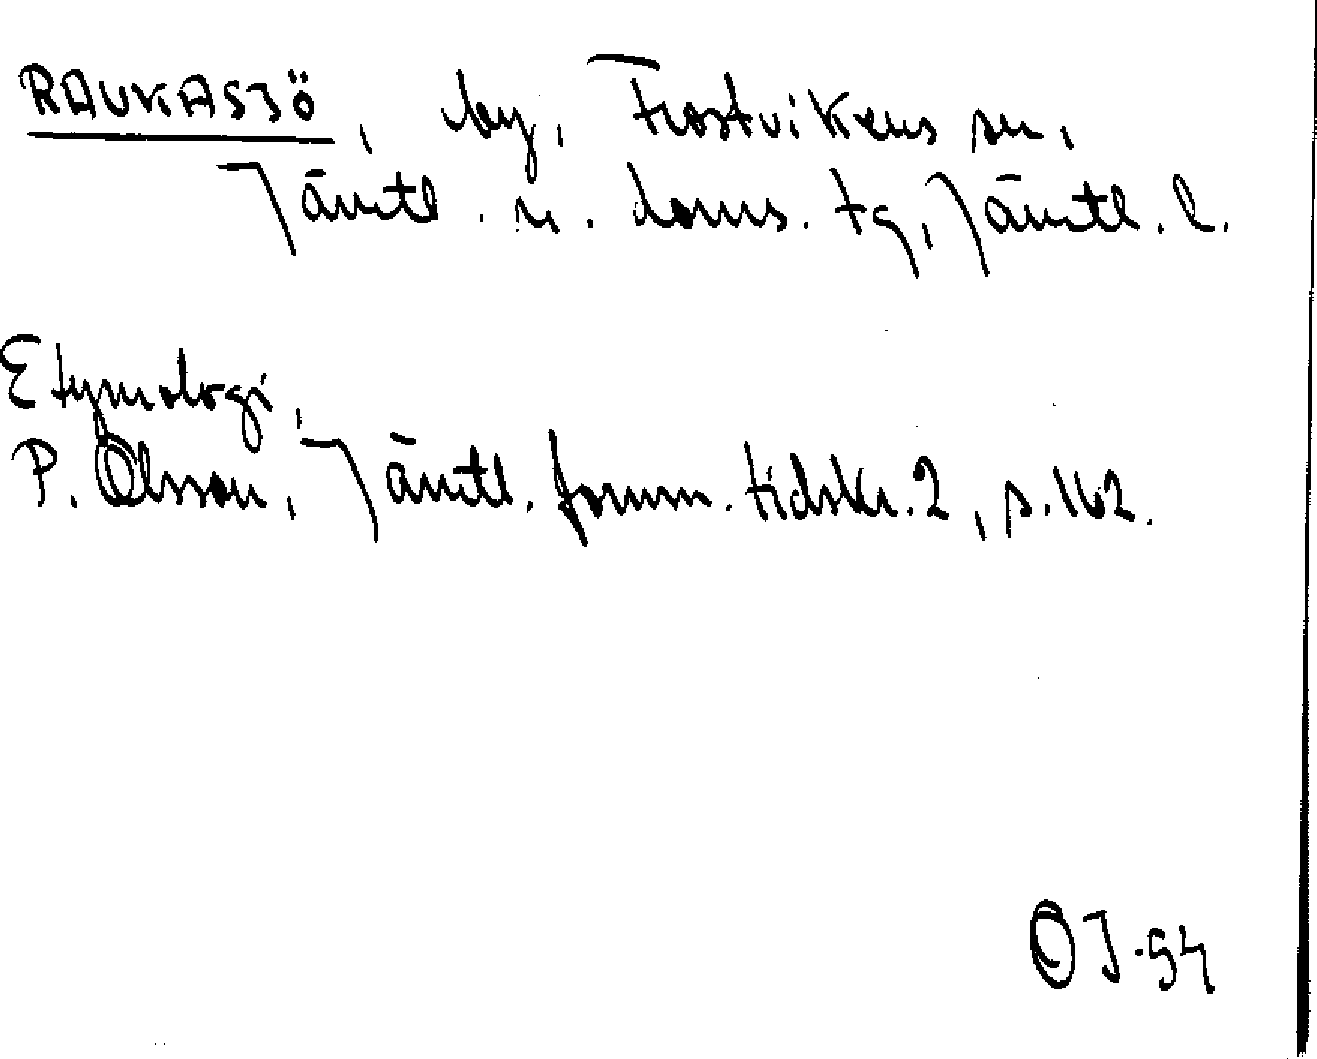 RAUKASJÖ, by, Frostvikens sn,
Jämtl. n. doms. tg, Jämtl. l.
Etymologi,
P. Olsson, Jämtl. fornm. tidskr. 2, s. 162.
OJ-54